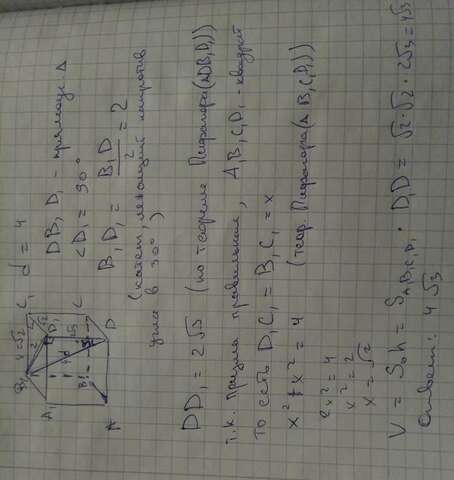 d = 4
DB₁D₁ - прямоуг. Δ
<D₁ = 90°
B₁D₁ = B₁D / 2 = 2
(катет, лежащий напротив
угла в 30°)
DD₁ = 2√3 (по теореме Пифагора(ΔDB₁D₁))
т.к. призма правильная, A₁B₁C₁D₁ - квадрат
То есть D₁C₁ = B₁C₁ = x
x² + x² = 4 (теор. Пифагора(Δ B₁C₁D₁))
2x² = 4
x² = 2
x = √2
V = Sₒh = S A₁B₁C₁D₁ · D₁D = √2·√2 · 2√3 = 4√3
Ответ: 4√3
B₁
x=√2
C₁
A₁
D₁
2
d
2√3
B
C
A
D